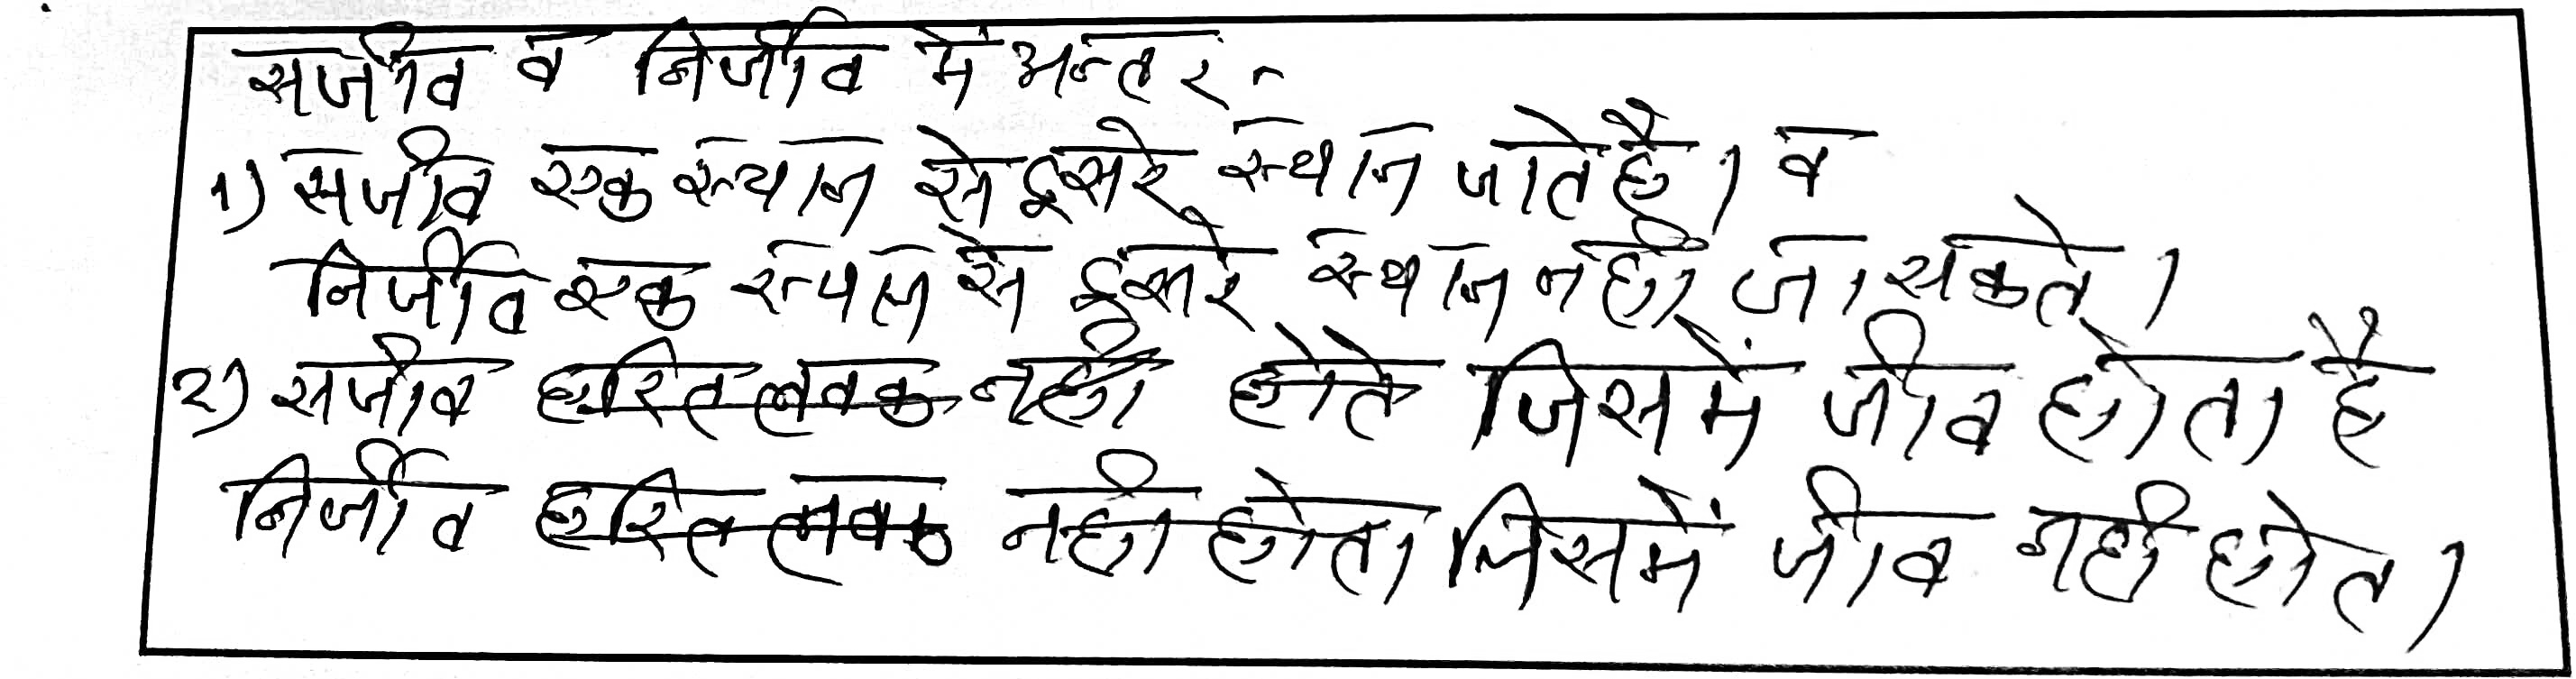 सजीव व निर्जीव में अन्तर -
1) सजीव एक स्थान से दूसरे स्थान जाते है। व
निर्जीव एक स्थान से दूसरे स्थान नही जा सकते।
2) सजीव हरितलवक नही होते जिसमें जीव होता है
निर्जीव हरितलवक नही होता जिसमें जीव नही होता